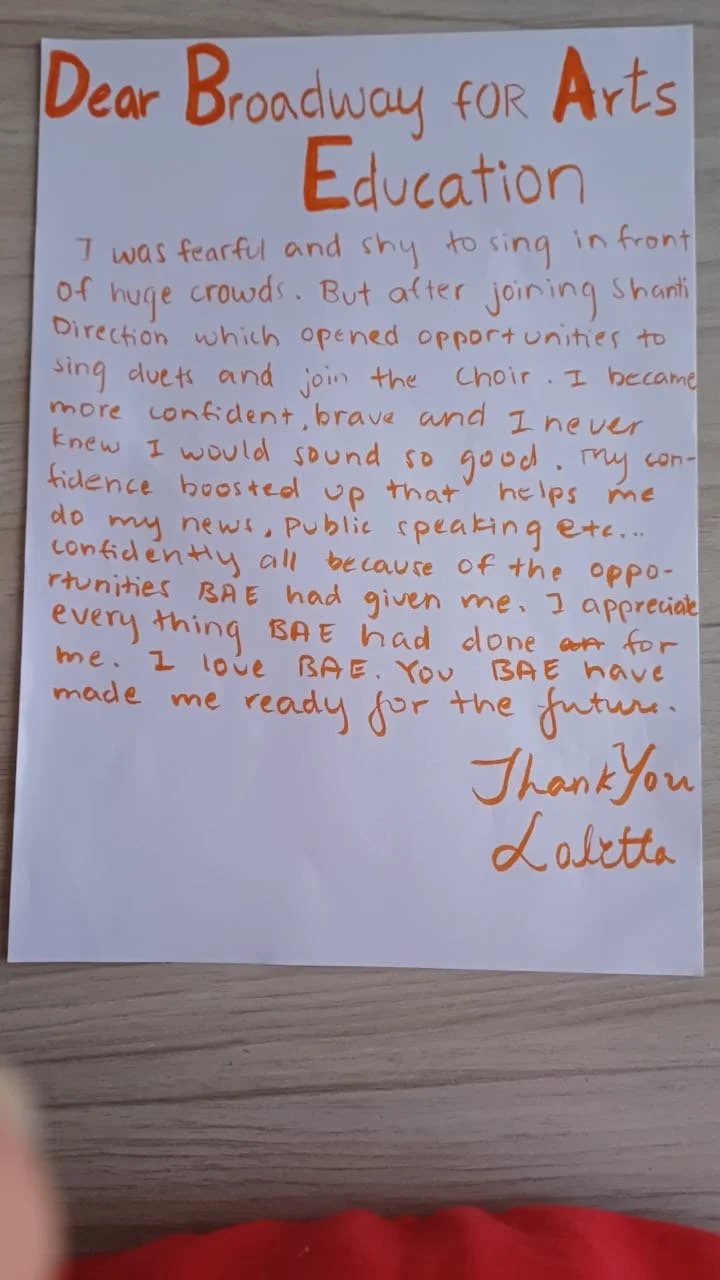 Dear Broadway for Arts
Education
I was fearful and shy to sing in front
of huge crowds. But after joining Shanti
Direction which opened opportunities to
sing duets and join the choir. I became
more confident, brave and I never
knew I would sound so good. My con-
fidence boosted up that helps me
do my news, public speaking etc...
confidently all because of the oppo-
rtunities BAE had given me. I appreciate
every thing BAE had done for
me. I love BAE. You BAE have
made me ready for the future.
Thank You
Loletta